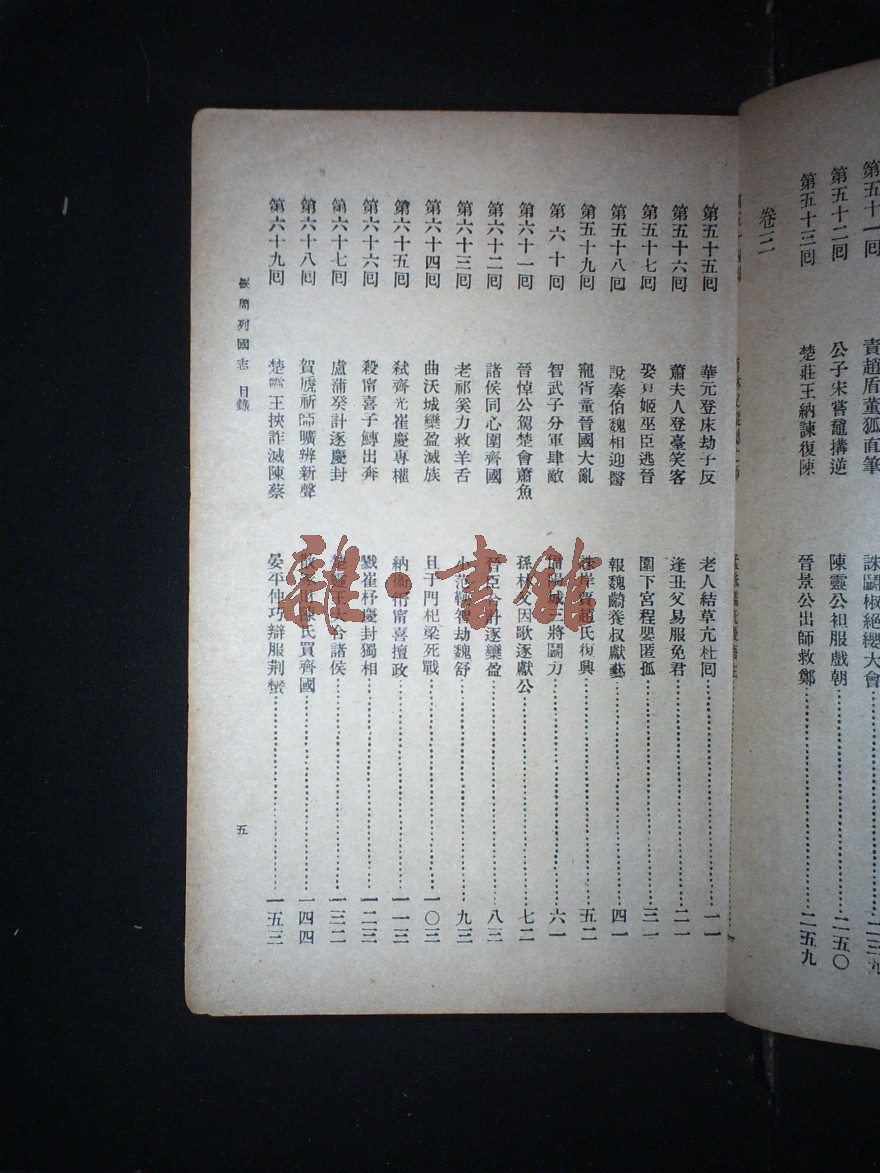 第五十一回 責趙盾董狐直筆 誅鬬椒絕纓大會 二三九
第五十二回 公子宋嘗黿搆逆 陳靈公衵服戲朝 二五〇
第五十三回 楚莊王納諫復陳 晉景公出師救鄭 二五九
卷三
第五十五回 華元登床劫子反 老人結草亢杜回 一一
第五十六回 蕭夫人登臺笑客 逢丑父易服免君 二一
第五十七回 娶夏姬巫臣逃晉 圍下宮程嬰匿孤 三一
第五十八回 說秦伯魏相迎醫 報魏錡養叔獻藝 四一
第五十九回 寵胥童晉國大亂 誅岸賈趙氏復興 五二
第六十回 智武子分軍肆敵 偪陽城三將鬬力 六一
第六十一回 晉悼公駕楚會蕭魚 孫林父因歌逐獻公 七二
第六十二回 諸侯同心圍齊國 晉臣合計逐欒盈 八三
第六十三回 老祁奚力救羊舌 小范鞅智劫魏舒 九三
第六十四回 曲沃城欒盈滅族 且于門杞梁死戰 一〇三
第六十五回 弒齊光崔慶專權 納衞衎甯喜擅政 一一三
第六十六回 殺甯喜子鱄出奔 戮崔杼慶封獨相 一二三
第六十七回 盧蒲癸計逐慶封 楚靈王大合諸侯 一三二
第六十八回 賀虒祁師曠辨新聲 散家財陳氏買齊國 一四四
第六十九回 楚靈王挾詐滅陳蔡 晏平仲巧辯服荆蠻 一五三
東周列國志 目錄 五
雜·書館